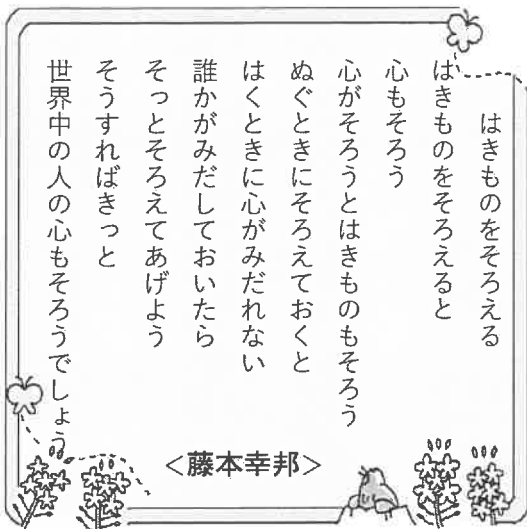 はきものをそろえる
はきものをそろえると
心もそろう
心がそろうとはきものもそろう
ぬぐときにそろえておくと
はくときに心がみだれない
誰かがみだしておいたら
そっとそろえてあげよう
そうすればきっと
世界中の人の心もそろうでしょう
<藤本幸邦>